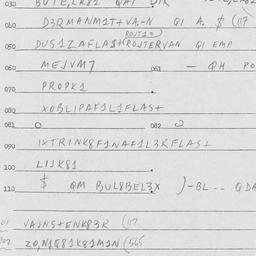 030 BUTE,LK81 QAT
040 D3RMANM1T+VA=N QI A. $ (117
ROUT1=
050 DUS1ZAFLAS+ROUTERVAN QI EMP
060 MEJVM7 061 — QH PO
070 PROPK1
080 XOBLIPAF1L1FLAS+
081 O 082 O
090 IXTRINK8F1NAF1L3RFLAS+
100 LIJK81
110 $ QM BUL8BEL3X )-BL -- QDA
01 VAJNS+ENK83R (117
302 ZO,N1G81K81M1N (565